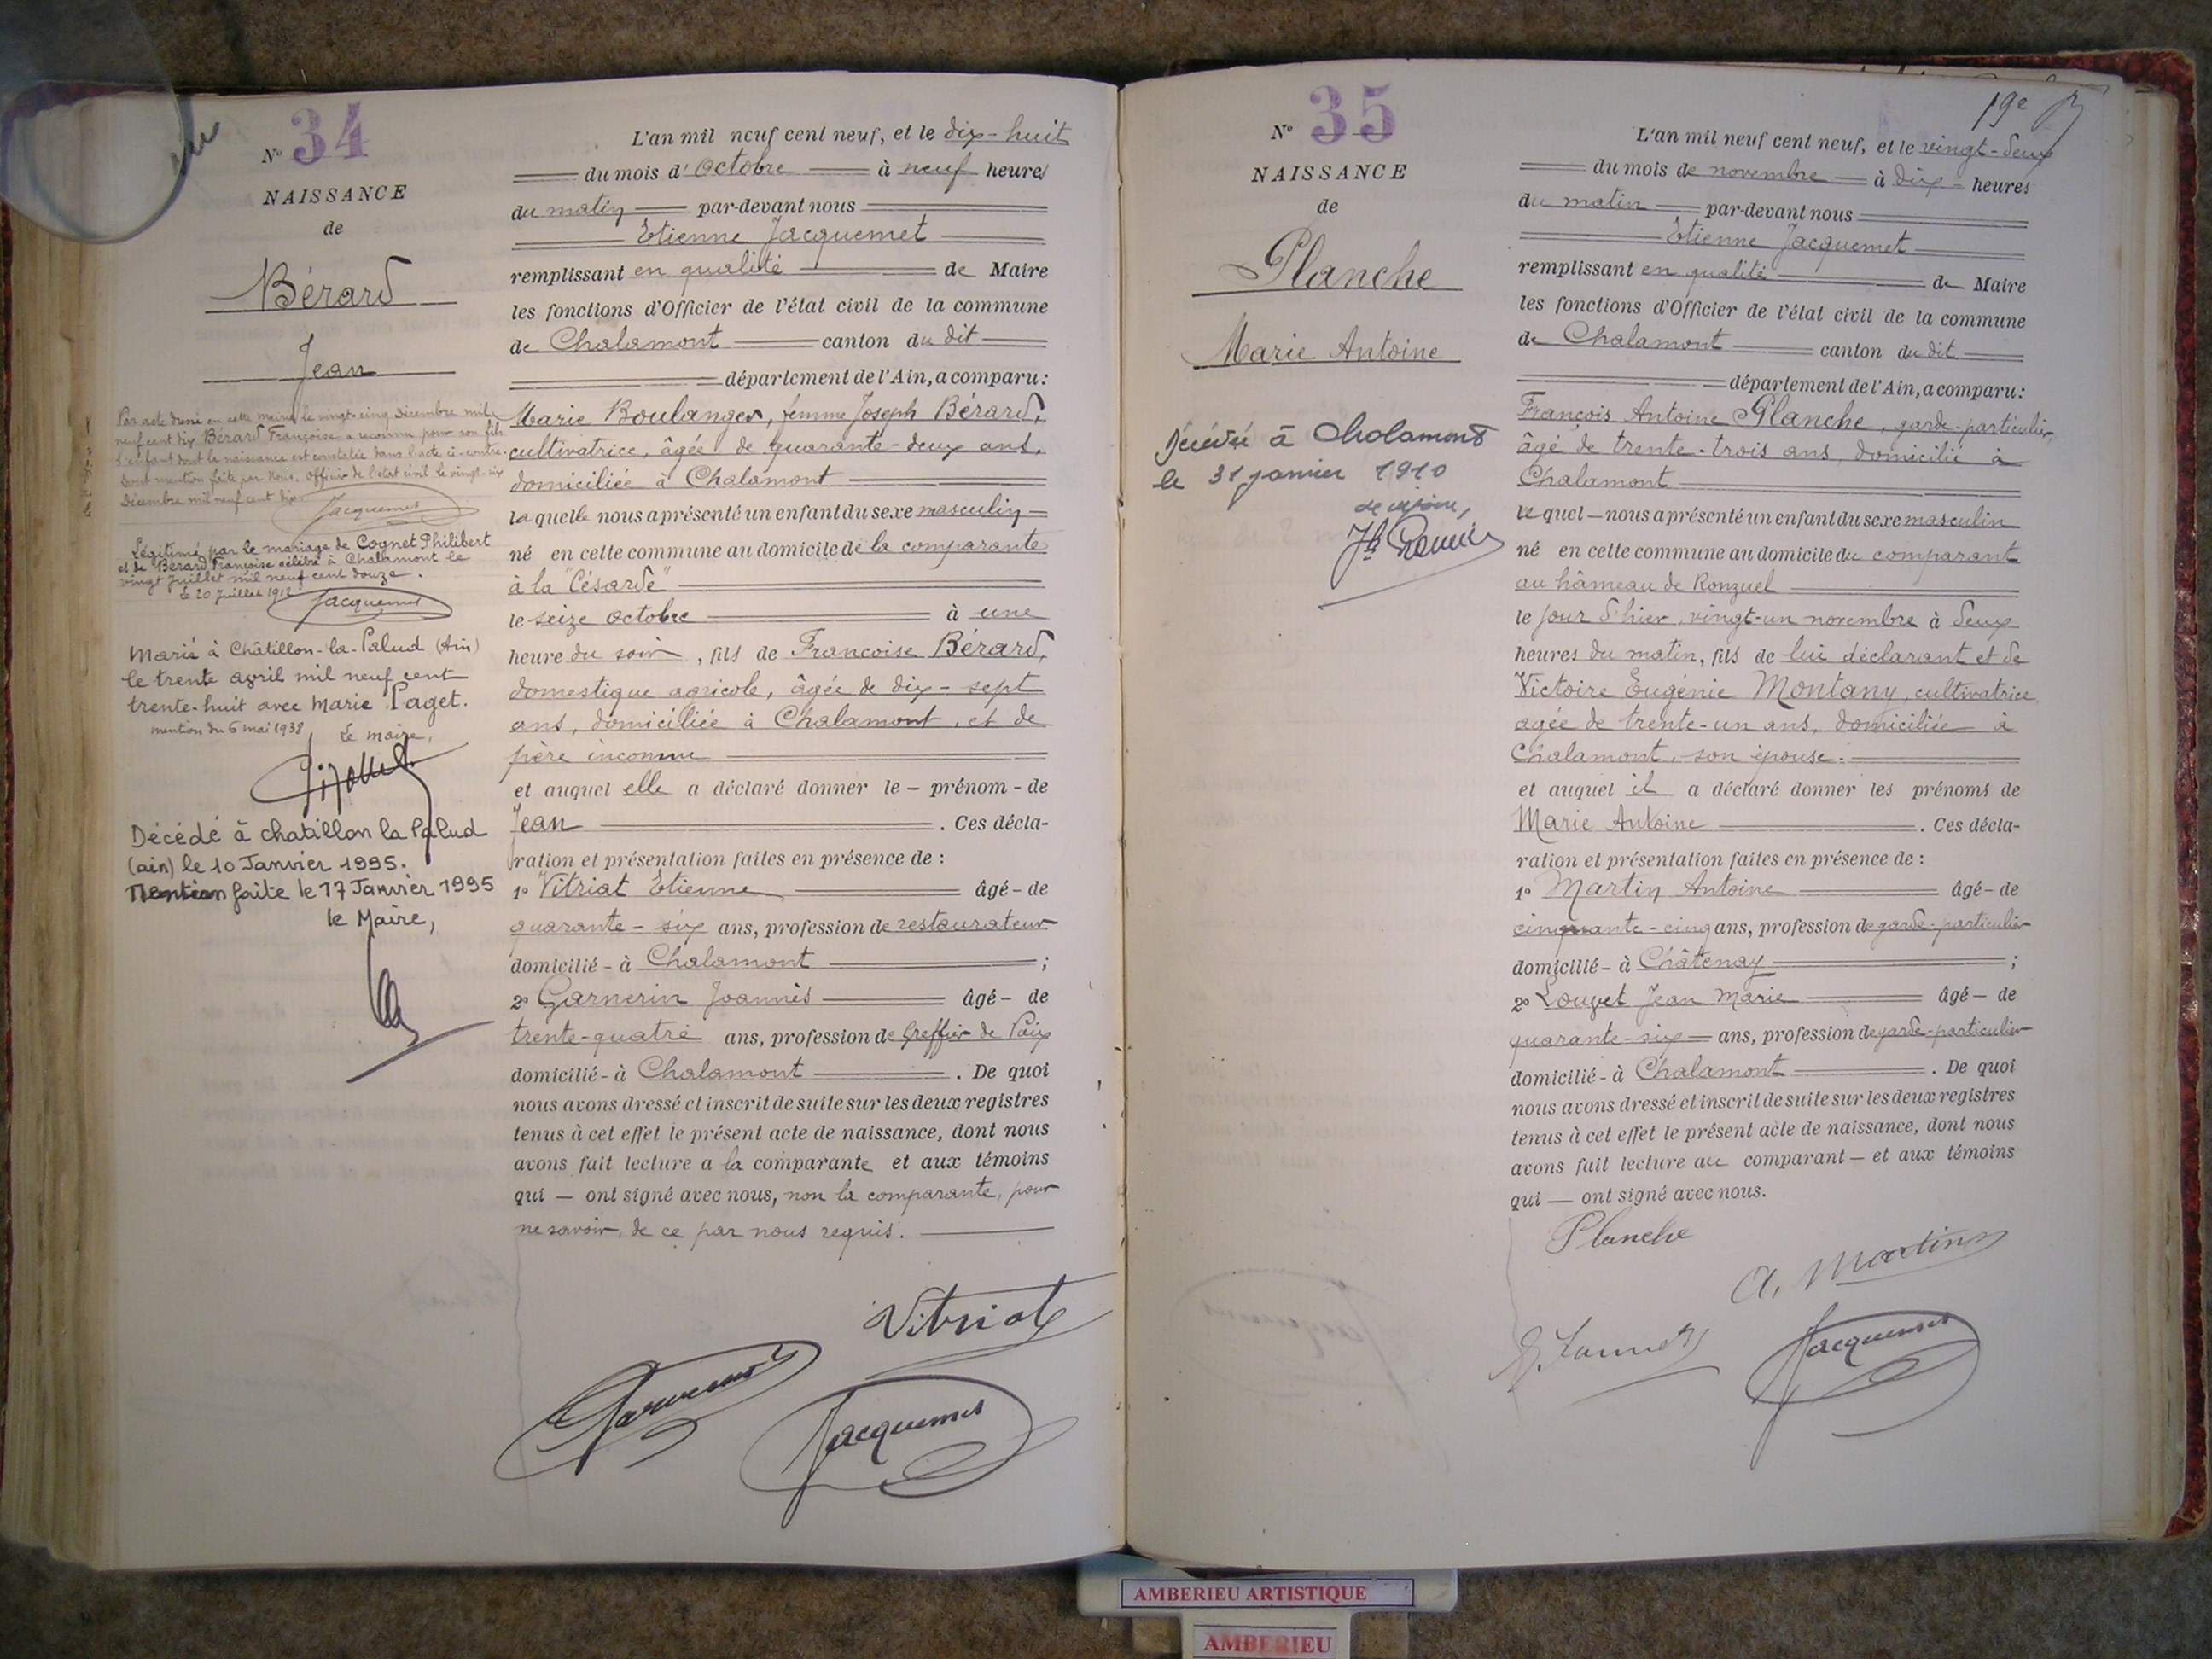 N° 34
NAISSANCE
de
Bérard
Jean
Par acte dressé en cette mairie le vingt-cinq décembre mil
neuf cent dix Bérard Françoise a reconnu pour son fils
l'enfant dont la naissance est constatée dans l'acte ci-contre.
Dont mention faite par Nous, officier de l'état civil le vingt-six
décembre mil neuf cent dix.
Jacquemet
Légitimé par le mariage de Cognet Philibert
et de Bérard Françoise célébré à Chalamont le
vingt Juillet mil neuf cent douze.
Le 20 Juillet 1912
Jacquemet
Marié à Châtillon-la-Palud (Ain)
le trente avril mil neuf cent
trente-huit avec Marie Paget.
mention du 6 mai 1938
Le maire,
Décédé à chatillon la Palud
(ain) le 10 Janvier 1995.
Mention faite le 17 Janvier 1995
le Maire,
L'an mil neuf cent neuf, et le dix-huit
du mois d'Octobre à neuf heures
du matin par-devant nous
Etienne Jacquemet
remplissant en qualité de Maire
les fonctions d'Officier de l'état civil de la commune
de Chalamont canton du dit
département de l'Ain, a comparu :
Marie Boulanger, femme Joseph Bérard,
cultivatrice, âgée de quarante-deux ans,
domiciliée à Chalamont
laquelle nous a présenté un enfant du sexe masculin
né en cette commune au domicile de la comparante
à la "Césarde"
le seize octobre à une
heure du soir, fils de Francoise Bérard,
domestique agricole, âgée de dix-sept
ans, domiciliée à Chalamont, et de
père inconnu
et auquel elle a déclaré donner le - prénom - de
Jean . Ces décla-
ration et présentation faites en présence de :
1° Vitriat Etienne âgé - de
quarante-six ans, profession de restaurateur
domicilié - à Chalamont ;
2° Garnerin Joannès âgé - de
trente-quatre ans, profession de Greffier de Paix
domicilié - à Chalamont . De quoi
nous avons dressé et inscrit de suite sur les deux registres
tenus à cet effet le présent acte de naissance, dont nous
avons fait lecture a la comparante et aux témoins
qui — ont signé avec nous, non la comparante, pour
ne savoir, de ce par nous requis.
Vitriat
Garnerin
Jacquemet
19e
N° 35
NAISSANCE
de
Planche
Marie Antoine
Décédé à Chalamont
le 31 janvier 1910
L'an mil neuf cent neuf, et le vingt-deux
du mois de novembre à dix heures
du matin par-devant nous
Etienne Jacquemet
remplissant en qualité de Maire
les fonctions d'Officier de l'état civil de la commune
de Chalamont canton du dit
département de l'Ain, a comparu :
François Antoine Planche, garde-particulier,
âgé de trente-trois ans, domicilié à
Chalamont
lequel — nous a présenté un enfant du sexe masculin
né en cette commune au domicile du comparant
au hâmeau de Ronzuel
le jour d'hier, vingt-un novembre à deux
heures du matin, fils de lui déclarant et de
Victoire Eugénie Montany, cultivatrice,
agée de trente-un ans, domiciliée à
Chalamont, son épouse.
et auquel il a déclaré donner les prénoms de
Marie Antoine . Ces décla-
ration et présentation faites en présence de :
1° Martin Antoine âgé - de
cinquante-cinq ans, profession de garde-particulier
domicilié - à Châtenay ;
2° Louvet Jean Marie âgé - de
quarante-six ans, profession de garde-particulier
domicilié - à Chalamont . De quoi
nous avons dressé et inscrit de suite sur les deux registres
tenus à cet effet le présent acte de naissance, dont nous
avons fait lecture au comparant — et aux témoins
qui — ont signé avec nous.
Planche
A. Martin
Jacquemet
AMBERIEU ARTISTIQUE
AMBERIEU